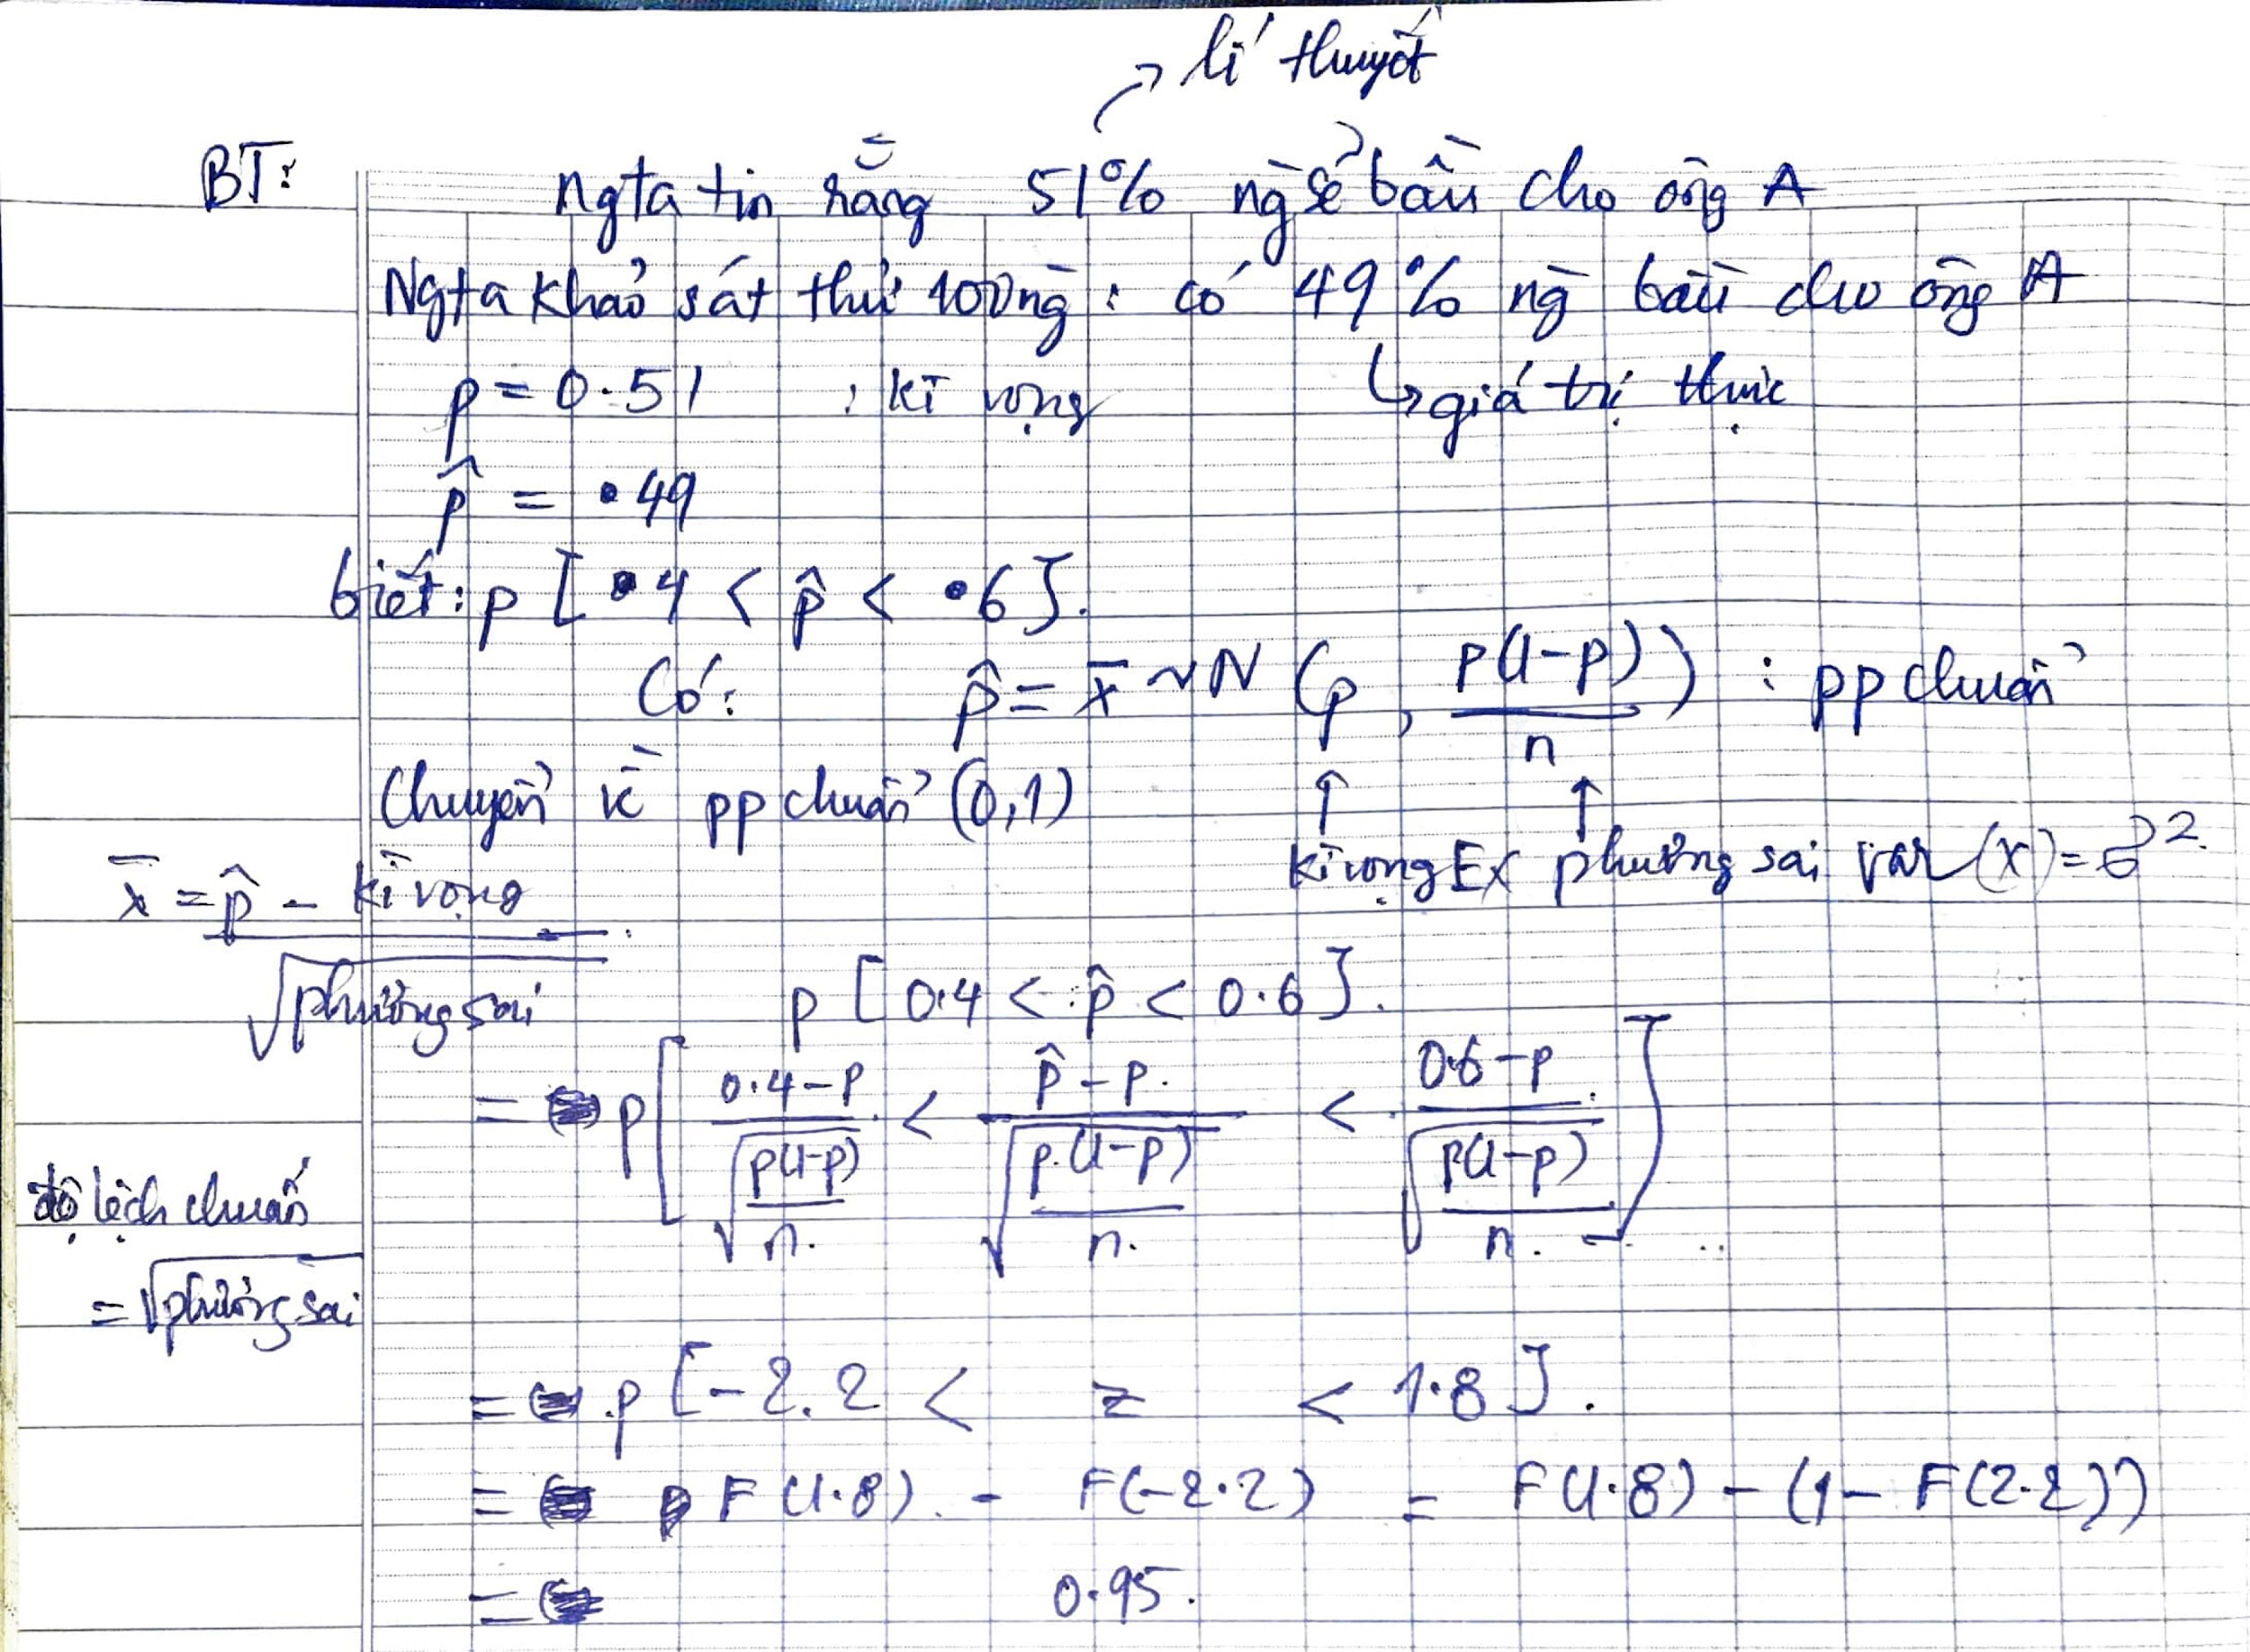 lí thuyết
BT: Ngta tin rằng 51% ng sẽ bầu cho ông A
Ngta khảo sát thử 100 ng : có 49% ng bầu cho ông A
p = 0.51 : kì vọng ↳ giá trị thực
p̂ = .49
biết: p [.4 < p̂ < .6].
Có: p̂ = x̄ ~ N (p, p(1-p)/n) : pp chuẩn
Chuyển về pp chuẩn (0,1)
kì vọng EX phương sai var(x) = σ².
x̄ = (p̂ - kì vọng)/√phương sai
p [0.4 < p̂ < 0.6].
= p[(0.4-p)/√(p(1-p)/n) < (p̂-p)/√(p.(1-p)/n) < (0.6-p)/√(p(1-p)/n)]
độ lệch chuẩn
= √phương sai
= p [-2.2 < z < 1.8].
= F(1.8) - F(-2.2) = F(1.8) - (1 - F(2.2))
= 0.95.